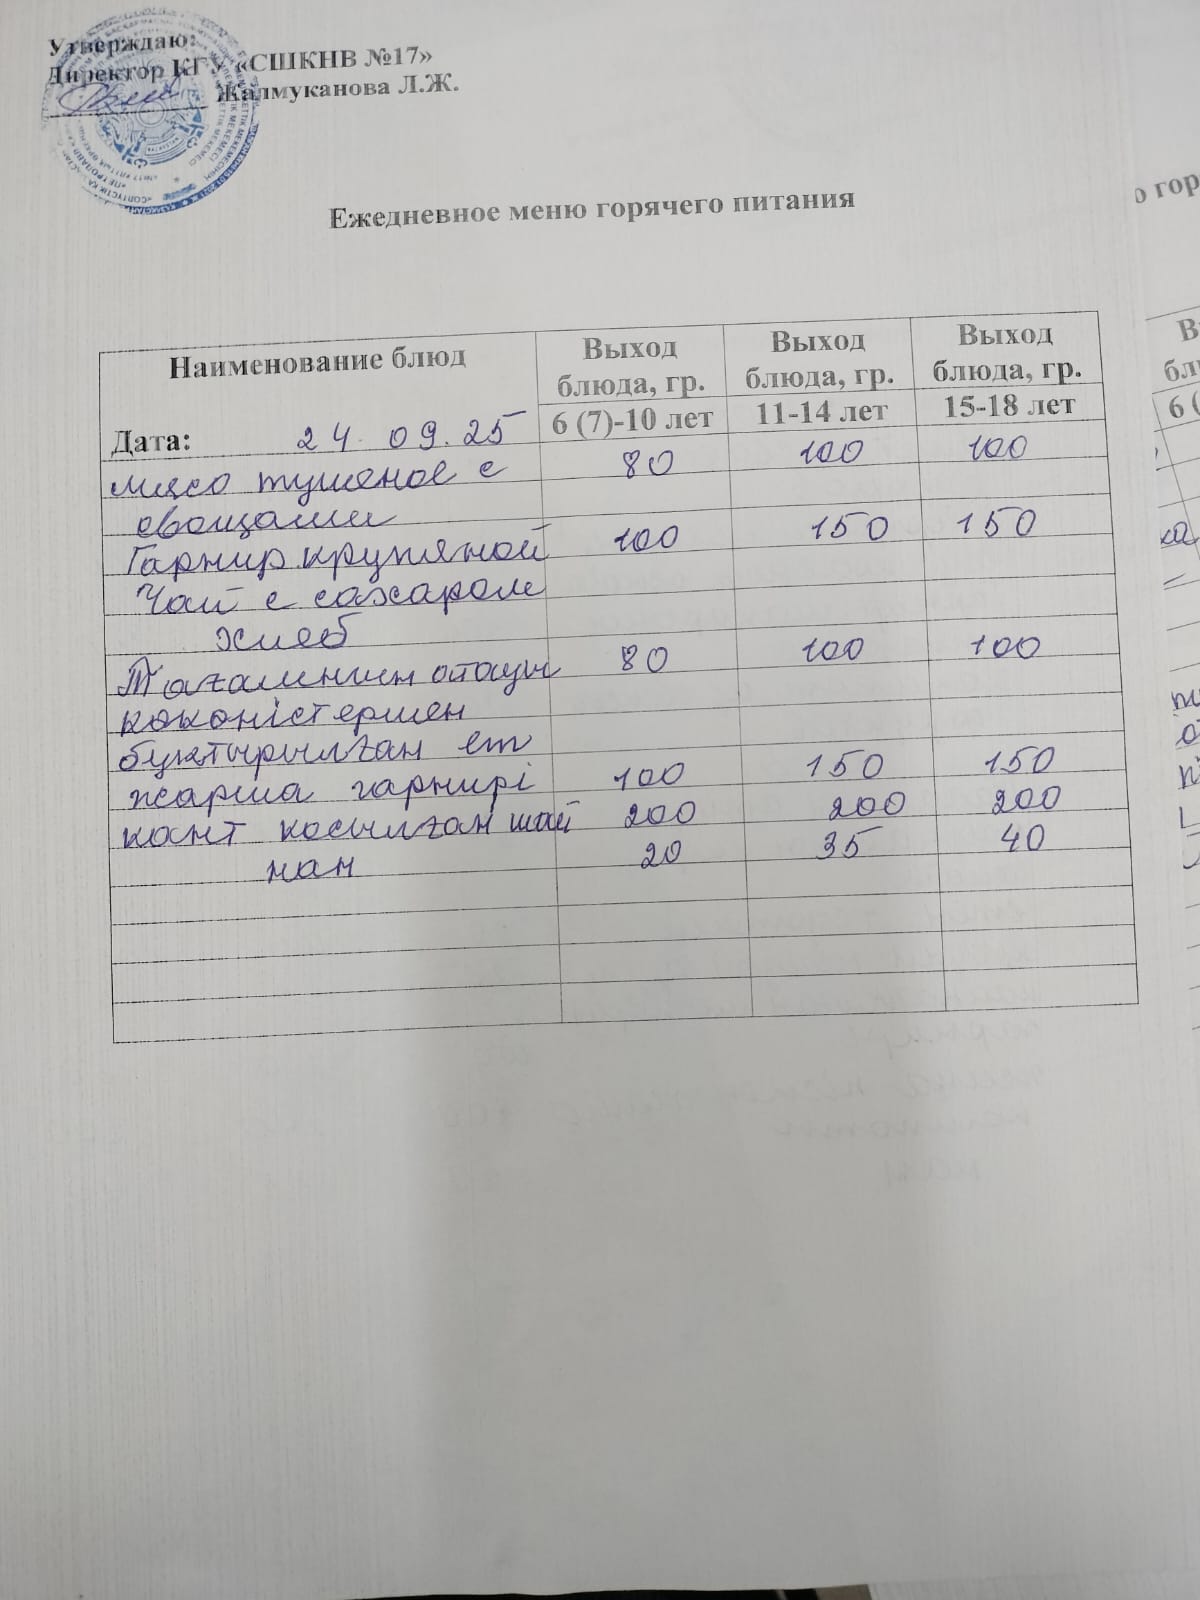 Утверждаю:
Директор КГУ «СШКНВ №17»
Жалмуканова Л.Ж.
Ежедневное меню горячего питания
о гор
Наименование блюд Выход блюда, гр. Выход блюда, гр. Выход блюда, гр.
Дата: 24.09.25 6 (7)-10 лет 11-14 лет 15-18 лет
мясо тушеное с 80 100 100
овощами
Гарнир крупяной 100 150 150
Чай с сахаром
хлеб
Тағамның атауы 80 100 100
көкөністермен
бұқтырылған ет
жарма гарнирі 100 150 150
кант қосылған шай 200 200 200
нан 20 35 40